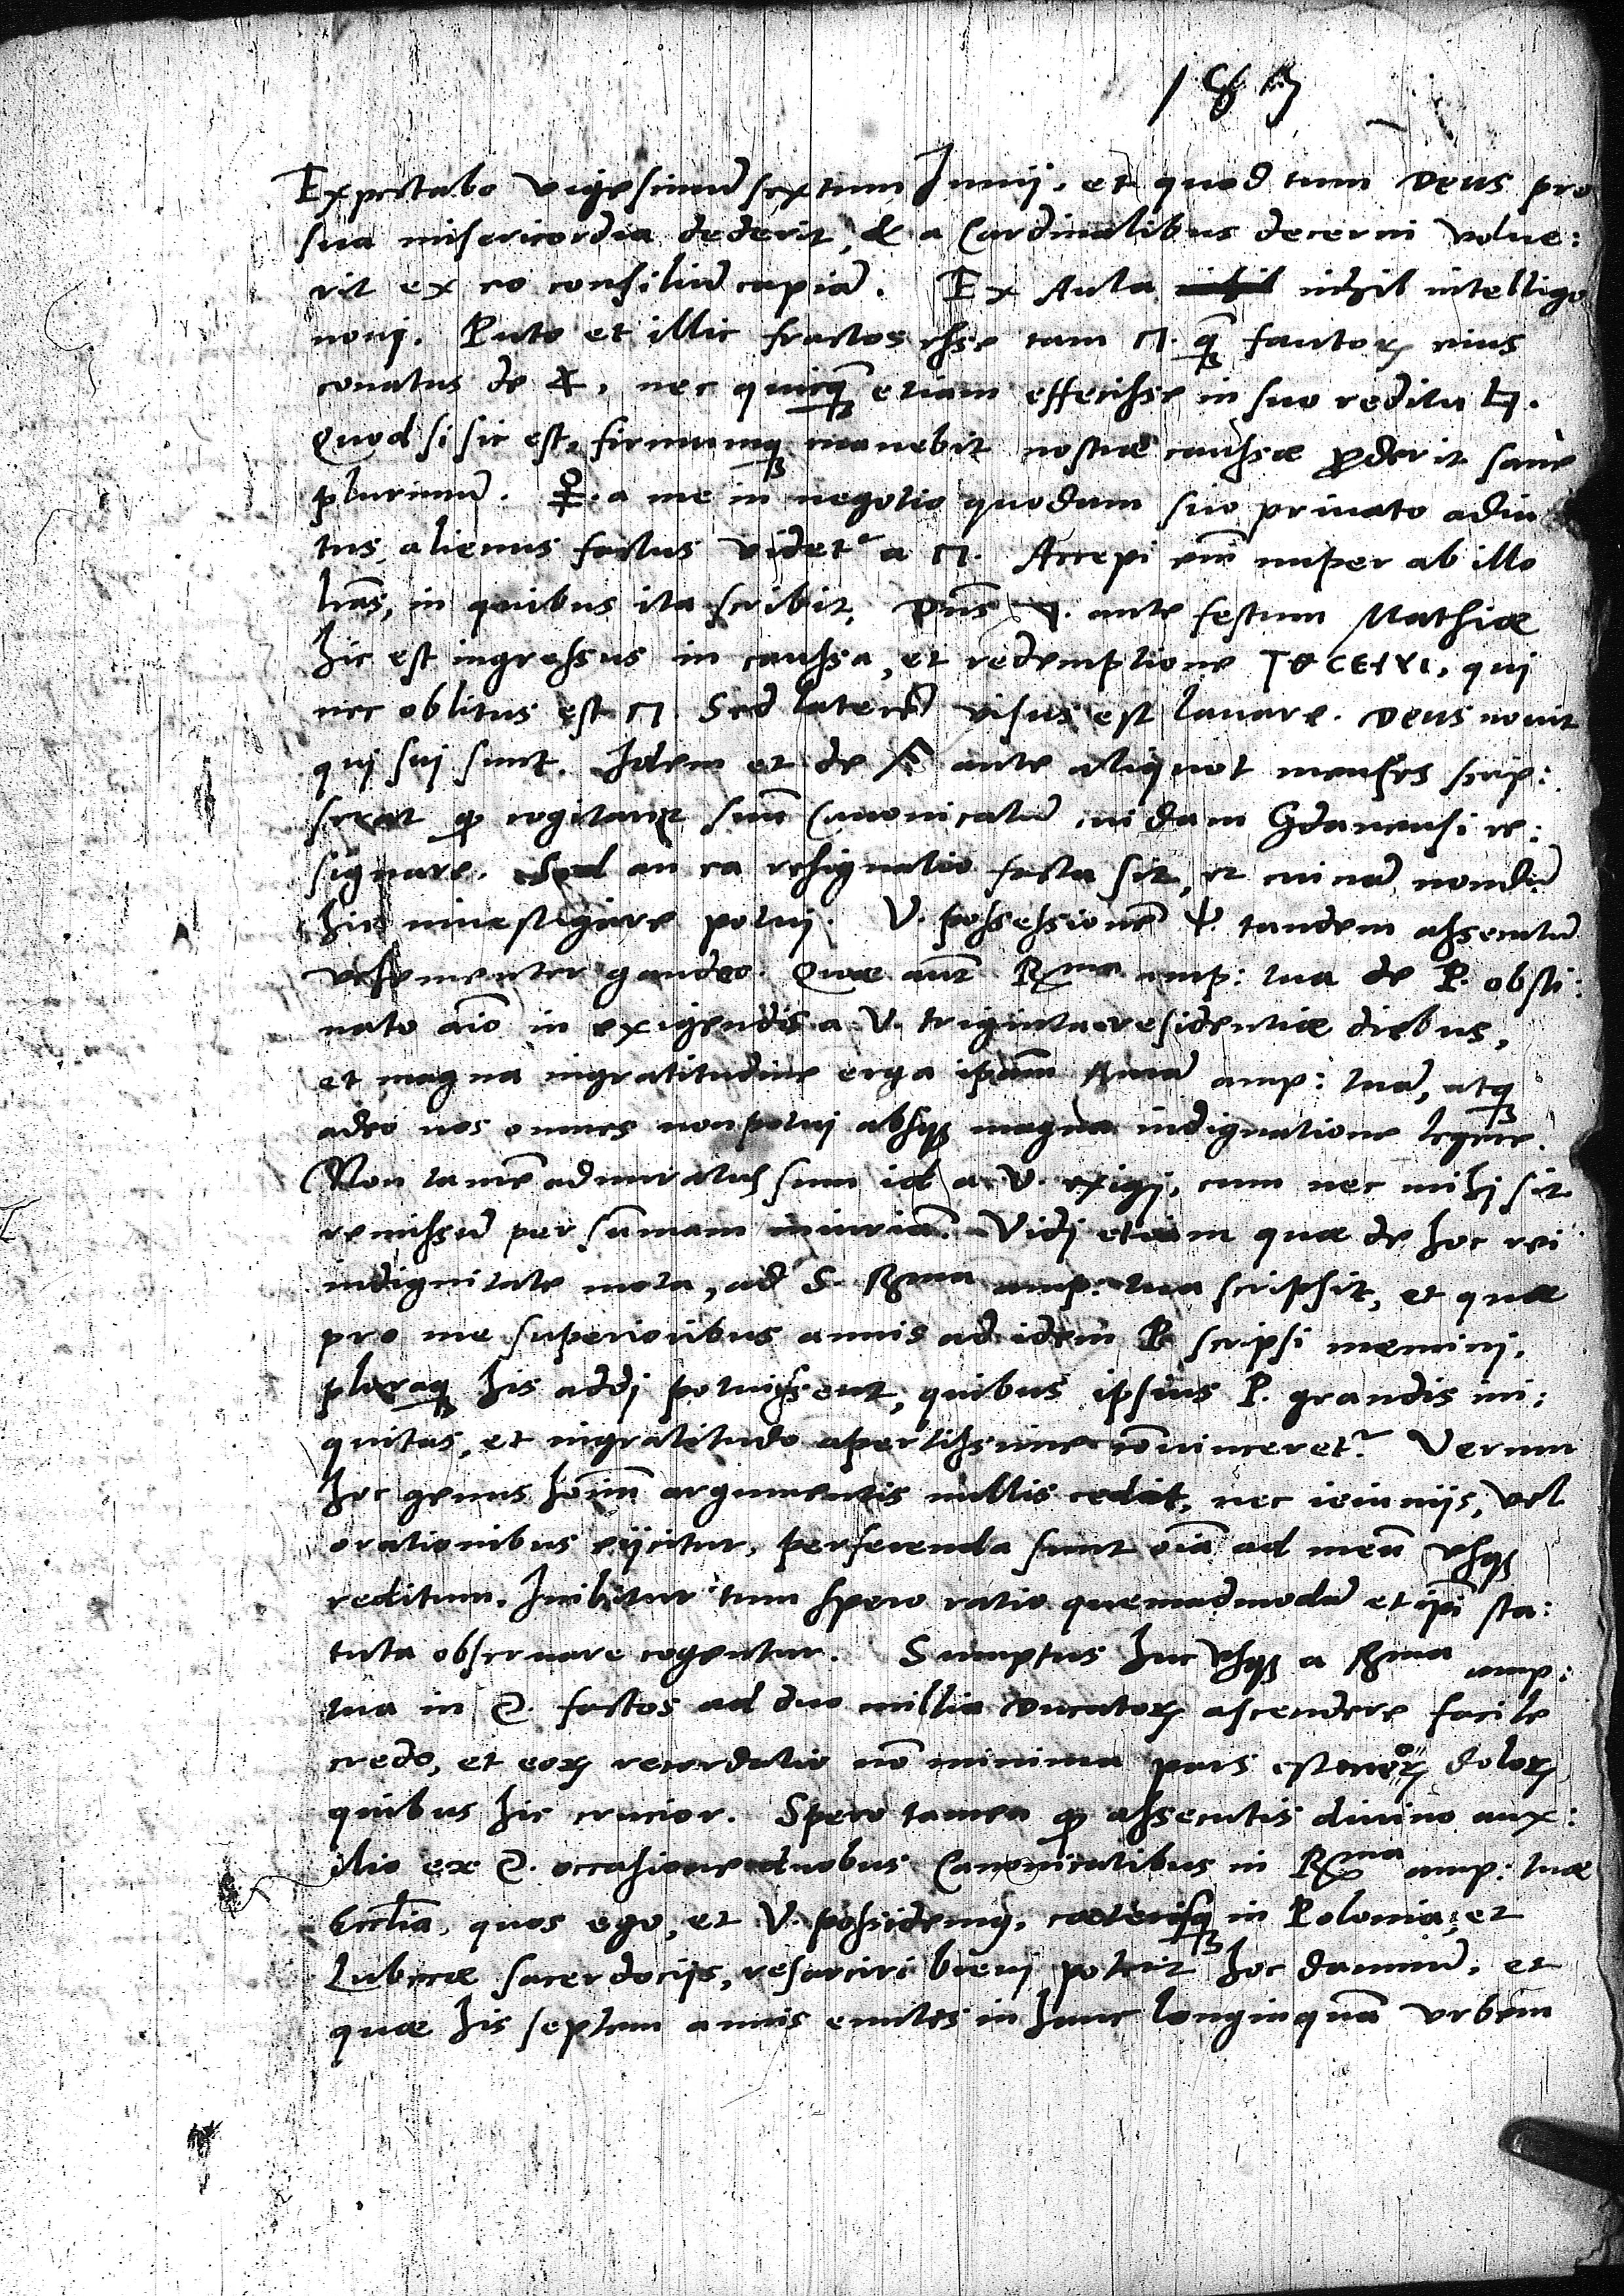 187
Expectabo vigesimũ sextum Junij, et quod tum Deus pro
sua misericordia dederit, & a Cardinalibus decerni volue:
rit ex eo consiliũ capiã. Ex Aula nihil intelligo
novj. Puto et illic fractos esse tam Π. q̃ fautorꝝ eius
conatus de, nec quicq̃ etiam effecisse in suo reditu
Quod si sic est, firmumqꝫ manebit nostræ caussæ ꝓderit sane
plurimũ. ♀. a me in negotio quodam suo priuato adiu
tus, alienus factus videtʳ a Π. Accepi em̃ nuper ab illo
lrãs, in quibus ita scribit, Dñs ante festum Mathiæ
hic est ingressus in caussa, et redemptione, qui
nec oblitus est Π. Sed laterẽ visus est lauare. Deus novit
qui suj sunt. Idem et de ante aliquot menses scrip:
serat ꝙ cogitaret suũ Canonicatũ cuidam Gdanensi re:
signare. Sed an ea resignatio facta sit, et cui nã nondũ
hic inuestigare potuj. V. possessionẽ Ψ. tandem assecutũ
vehementer gaudeo. Quæ aut̃ Rma amp: tua de P. obsti:
nato aĩo in exigendis a V. triginta residentiæ diebus,
et magna ingratitudine erga ipsam Rmã amp: tuã, atqꝫ
adeo nos omnes non potuj absqꝫ magna indignatione legere.
Non tamẽ admiratus sum id a V. exigj, cum nec mihj sit
remissũ per sum̃am iniuriã. Vidj etiam quæ de hoc rei
indignitate mota, ad S. Rma amp: tua scripsit, et quæ
pro me superioribus annis ad idem P. scripsi meminj,
pleraqꝫ his addj potuissent, quibus ipsius P. grandis ini:
quitas, et ingratitudo apertissime cõuinceretʳ. Verum
hoc genus hoĩm argumentis nullis cedit, nec ieiunijs, vel
orationibus eijcitur, perferenda sunt oĩa ad meũ vsqꝫ
reditum. Inibitur tum spero ratio quemadmodũ et ipsi sta:
tuta obseruare cogentur. Sumptus huc vsqꝫ a Rma amp:
tua in factos ad duo millia Ducatorꝝ ascendere facile
credo, et eorꝝ recordatio nõ minima pars est meorꝝ dolorꝝ
quibus hic crucior. Spero tamen ꝙ assecutis diuino aux:
ilio ex occasione duobus Canonicatibus in Rma amp: tuæ
Eccl̃ia, quos ego, et V. possidemꝰ, cæterisqꝫ in Polonia, et
Lubecæ sacerdocijs, resarciri breuj poterit hoc damnũ, et
quæ his septem annis euntes in hanc longinquã vrbem